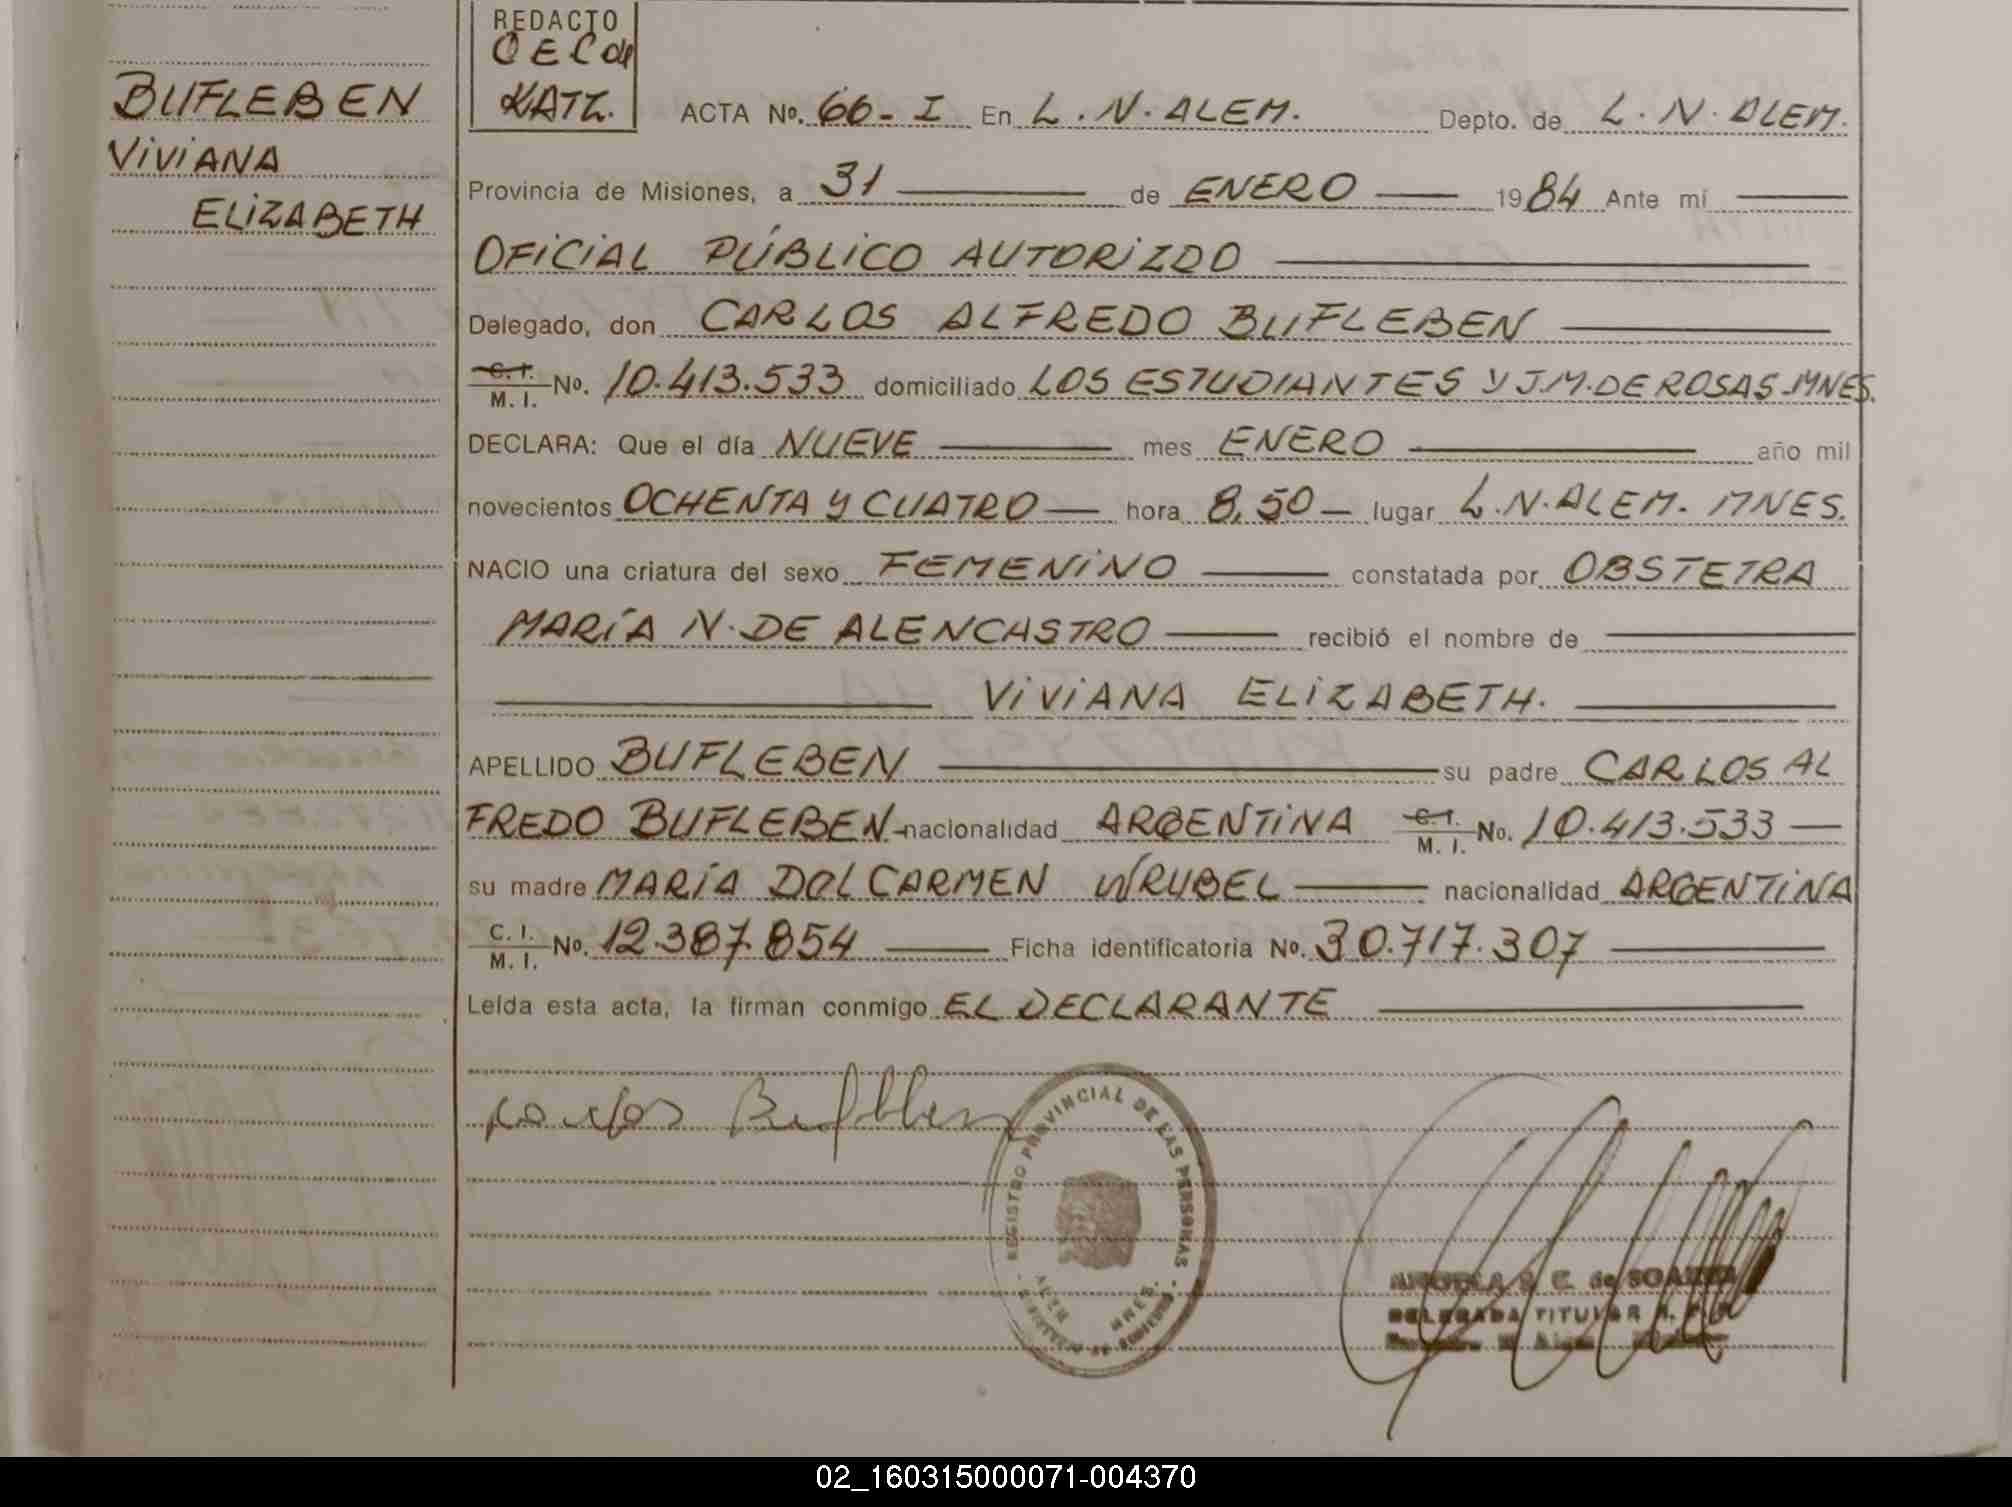 REDACTO
O E L de
KATZ.
BUFLEBEN
VIVIANA
ELIZABETH
ACTA No. 66 - I En L. N. ALEM. Depto. de L. N. ALEM.
Provincia de Misiones, a 31 de ENERO 1984 Ante mí
OFICIAL PÚBLICO AUTORIZDO
Delegado, don CARLOS ALFREDO BUFLEBEN
C. I. M. I. No. 10.413.533 domiciliado LOS ESTUDIANTES Y J.M. DE ROSAS. MNES.
DECLARA: Que el día NUEVE mes ENERO año mil
novecientos OCHENTA Y CUATRO hora 8,50 lugar L.N. ALEM. MNES.
NACIO una criatura del sexo FEMENINO constatada por OBSTETRA
MARÍA N. DE ALENCASTRO recibió el nombre de
VIVIANA ELIZABETH.
APELLIDO BUFLEBEN su padre CARLOS AL
FREDO BUFLEBEN nacionalidad ARGENTINA C. I. M. I. No. 10.413.533
su madre MARÍA DEL CARMEN WRUBEL nacionalidad ARGENTINA
C. I. M. I. No. 12.387.854 Ficha identificatoria No. 30.717.307
Leída esta acta, la firman conmigo EL DECLARANTE
Carlos Bufleben
REGISTRO PROVINCIAL DE LAS PERSONAS
MNES.
de SOAREZ
DELEGADA TITULAR
02_160315000071-004370